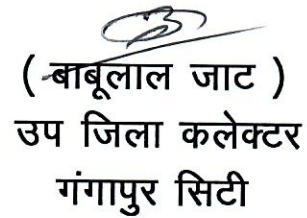 ( बाबूलाल जाट )
उप जिला कलेक्टर
गंगापुर सिटी